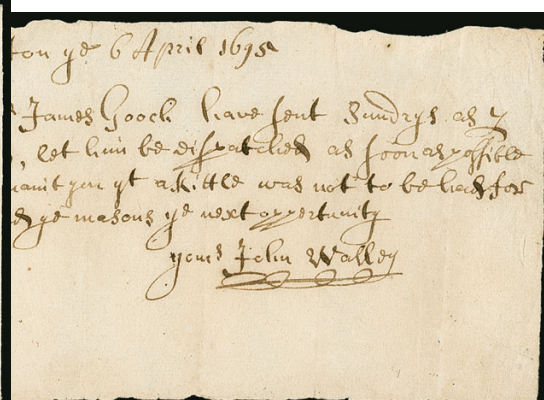 ton ye 6 April 1695
James Gooch have sent Sundrys as
let him be dispatched as soon as possible
you yt a kittle was not to be had for
ye masons ye next oppertunity
yours John Walley